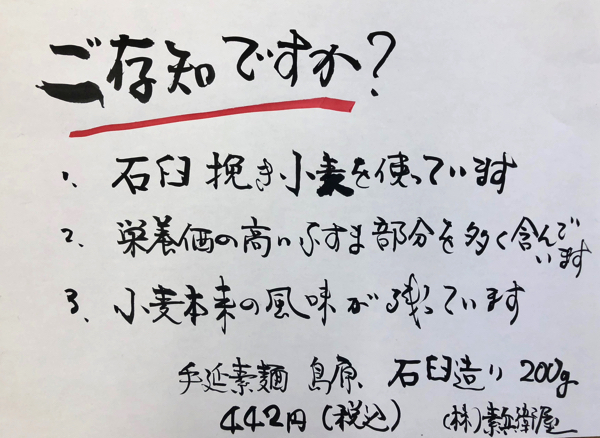 ご存知ですか?
1. 石臼挽き小麦を使っています
2. 栄養価の高いふすま部分を多く含んでいます
3. 小麦本来の風味が残っています
手延素麺 島原、石臼造り 200g
442円(税込) (株)素兵衛屋